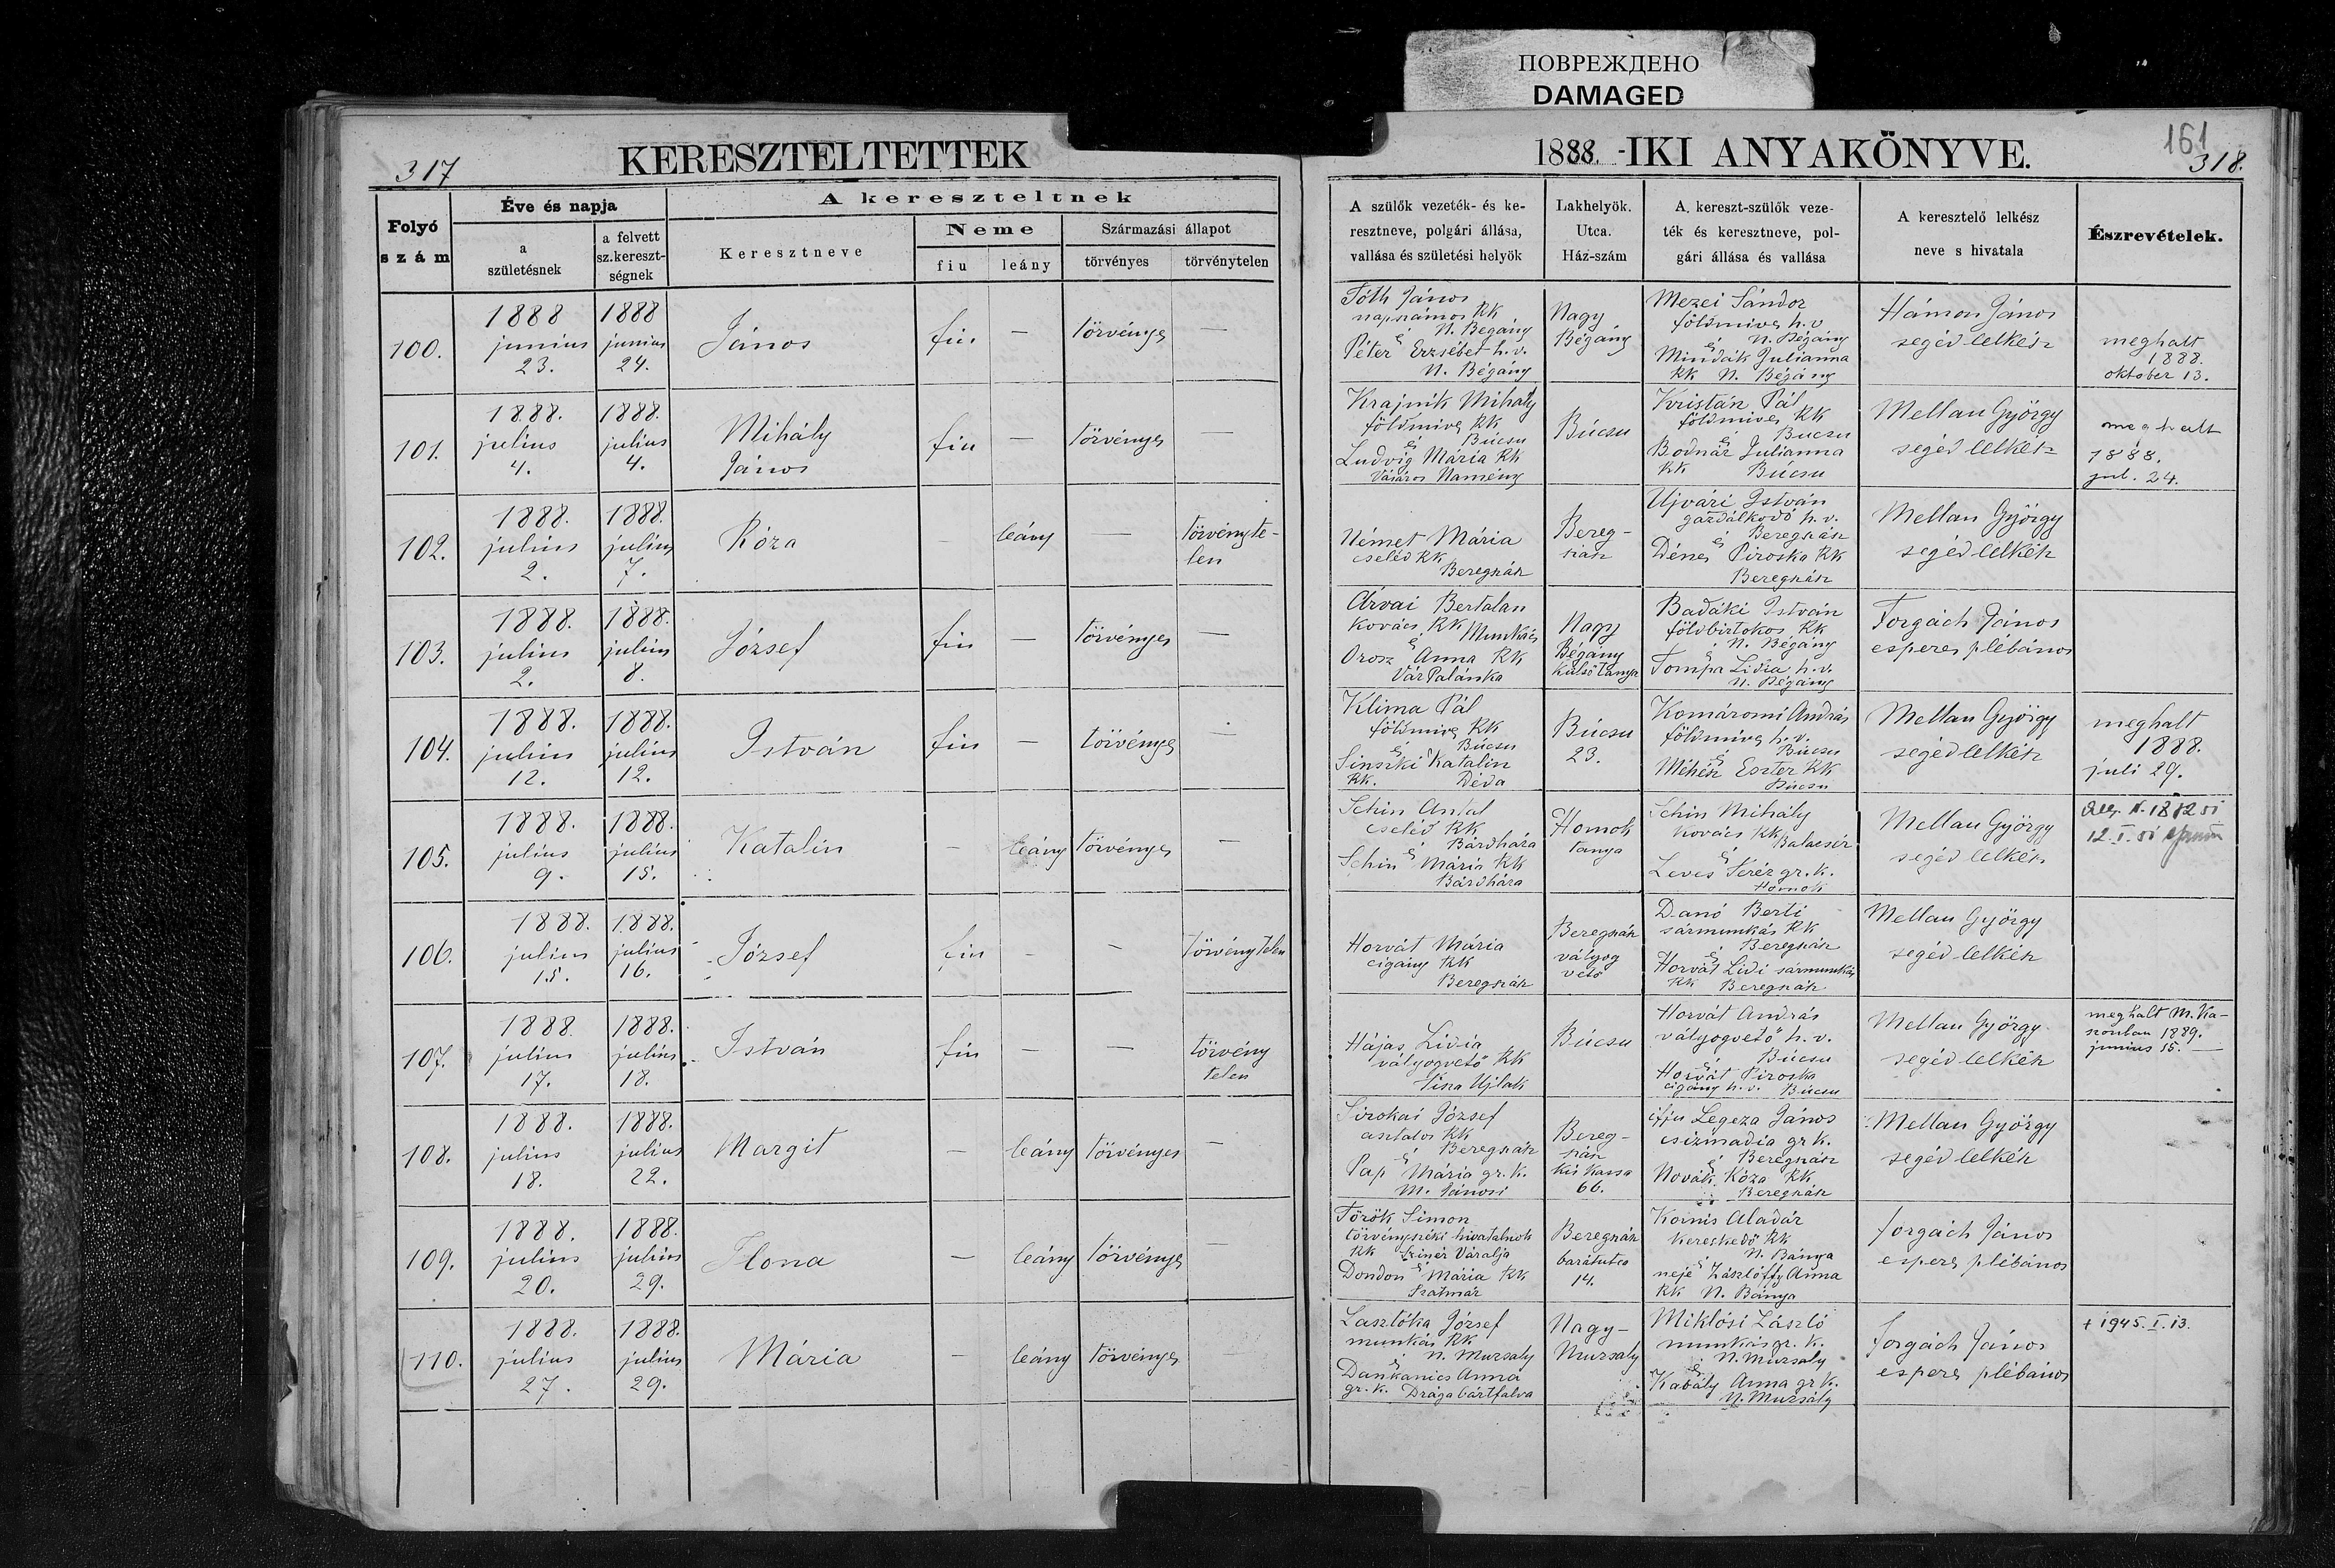 ПОВРЕЖДЕНО
DAMAGED
317
KERESZTELTETTEK
1888. -IKI ANYAKÖNYVE.
161
318.
Folyó szám
Éve és napja
a születésnek
a felvett sz. kereszt-ségnek
A kereszteltnek
Keresztneve
Neme
fiu
leány
Származási állapot
törvényes
törvénytelen
A szülők vezeték- és ke-
resztneve, polgári állása,
vallása és születési helyök
Lakhelyök.
Utca.
Ház-szám
A kereszt-szülők veze-
ték és keresztneve, pol-
gári állása és vallása
A keresztelő lelkész
neve s hivatala
Észrevételek.
100.
1888 junius 23.
1888 junius 24.
János
fiu
—
törvényes
—
Tóth János
napszámos RK
N. Bégány
é
Péter Erzsébet h. v.
N. Bégány
Nagy
Bégány
Mezei Sándor
földmives h. v.
N. Bégány
é
Mindák Julianna
RK N. Bégány
Hámon János
segéd lelkész
meghalt
1888.
oktober 13.
101.
1888. julius 4.
1888. julius 4.
Mihály
János
fiu
—
törvényes
—
Krajnik Mihály
földmives RK
é Búcsu
Ludvig Mária RK
Vásáros Namény
Búcsu
Kristán Pál
földmives RK
é Bucsu
Bodnár Julianna
RK Búcsu
Mellau György
segéd lelkész
meghalt
1888.
jul. 24.
102.
1888. julius 2.
1888. julius 7.
Róza
—
leány
—
törvényte-
len
Német Mária
cseléd RK
Beregszász
Bereg-
szász
Ujvári István
gazdálkodó h. v.
é Beregszász
Dénes Piroska RK
Beregszász
Mellau György
segéd lelkész
103.
1888. julius 2.
1888. julius 8.
József
fiu
—
törvényes
—
Árvai Bertalan
kovács RK Munkács
é
Orosz Anna RK
Vár Palánka
Nagy
Bégány
külső tanya
Badáki István
földbirtokos RK
é N. Bégány
Tompa Lidia h. v.
N. Bégány
Forgách János
esperes plébános
104.
1888. julius 12.
1888. julius 12.
István
fiu
—
törvényes
—
Klima Pál
földmives RK
é Búcsu
Sinszki Katalin
RK. Déda
Búcsu
23.
Komáromi András
földmives h. v.
é Búcsu
Méhész Eszter RK
Búcsu
Mellau György
segéd lelkész
meghalt
1888.
juli 29.
105.
1888. julius 9.
1888. julius 15.
Katalin
—
leány
törvényes
—
Schin Antal
cseléd RK
é Bárdháza
Schin Mária RK
Bárdháza
Homok
tanya
Schin Mihály
kovács RK
é Balazsér
Leves Teréz gr. k.
Homok
Mellau György
segéd lelkész
12. I.
106.
1888. julius 15.
1888. julius 16.
József
fiu
—
—
törvénytelen
Horvát Mária
cigány RK
Beregszász
Beregszász
vályog
vető
Danó Berti
sármunkás RK
é Beregszász
Horvát Lidi sármunkás
RK Beregszász
Mellau György
segéd lelkész
107.
1888 julius 17.
1888. julius 18.
István
fiu
—
—
törvény
telen
Hájas Lidia
vályogvető RK
Tisza Ujlak
Búcsu
Horvát András
vályogvető h. v.
é Búcsu
Horvát Piroska
cigány h. v. Búcsu
Mellau György
segéd lelkész
meghalt M. Ka-
szonban 1889.
junius 15. —
108.
1888. julius 18.
1888. julius 22.
Margit
—
leány
törvényes
—
Sirokai József
asztalos RK
é Beregszász
Pap Mária gr. k.
M. Jánosi
Bereg-
szász
Kis Kassa
66.
ifju Legeza János
csizmadia gr k.
é Beregszász
Novák Róza RK
Beregszász
Mellau György
segéd lelkész
109.
1888. julius 20.
1888. julius 29.
Ilona
—
leány
törvényes
—
Török Simon
törvényszéki hivatalnok
RK Szinér Váralja
é
Dondon Mária RK
Szatmár
Beregszász
barátutca
14.
Kornis Aladár
kereskedő RK
é N. Bánya
neje Lászlóffy Anna
RK N. Bánya
Forgách János
esperes plébános
110.
1888. julius 27.
1888. julius 29.
Mária
—
leány
törvényes
—
Lasztóka József
munkás RK
é N. Muzsaly
Dankanics Anna
gr. k. Drágabártfalva
Nagy-
Muzsaly
Miklósi László
munkás gr. k.
é N. Muzsaly
Kabály Anna gr k.
N. Muzsaly
Forgách János
esperes plébános
+ 1945. I. 13.